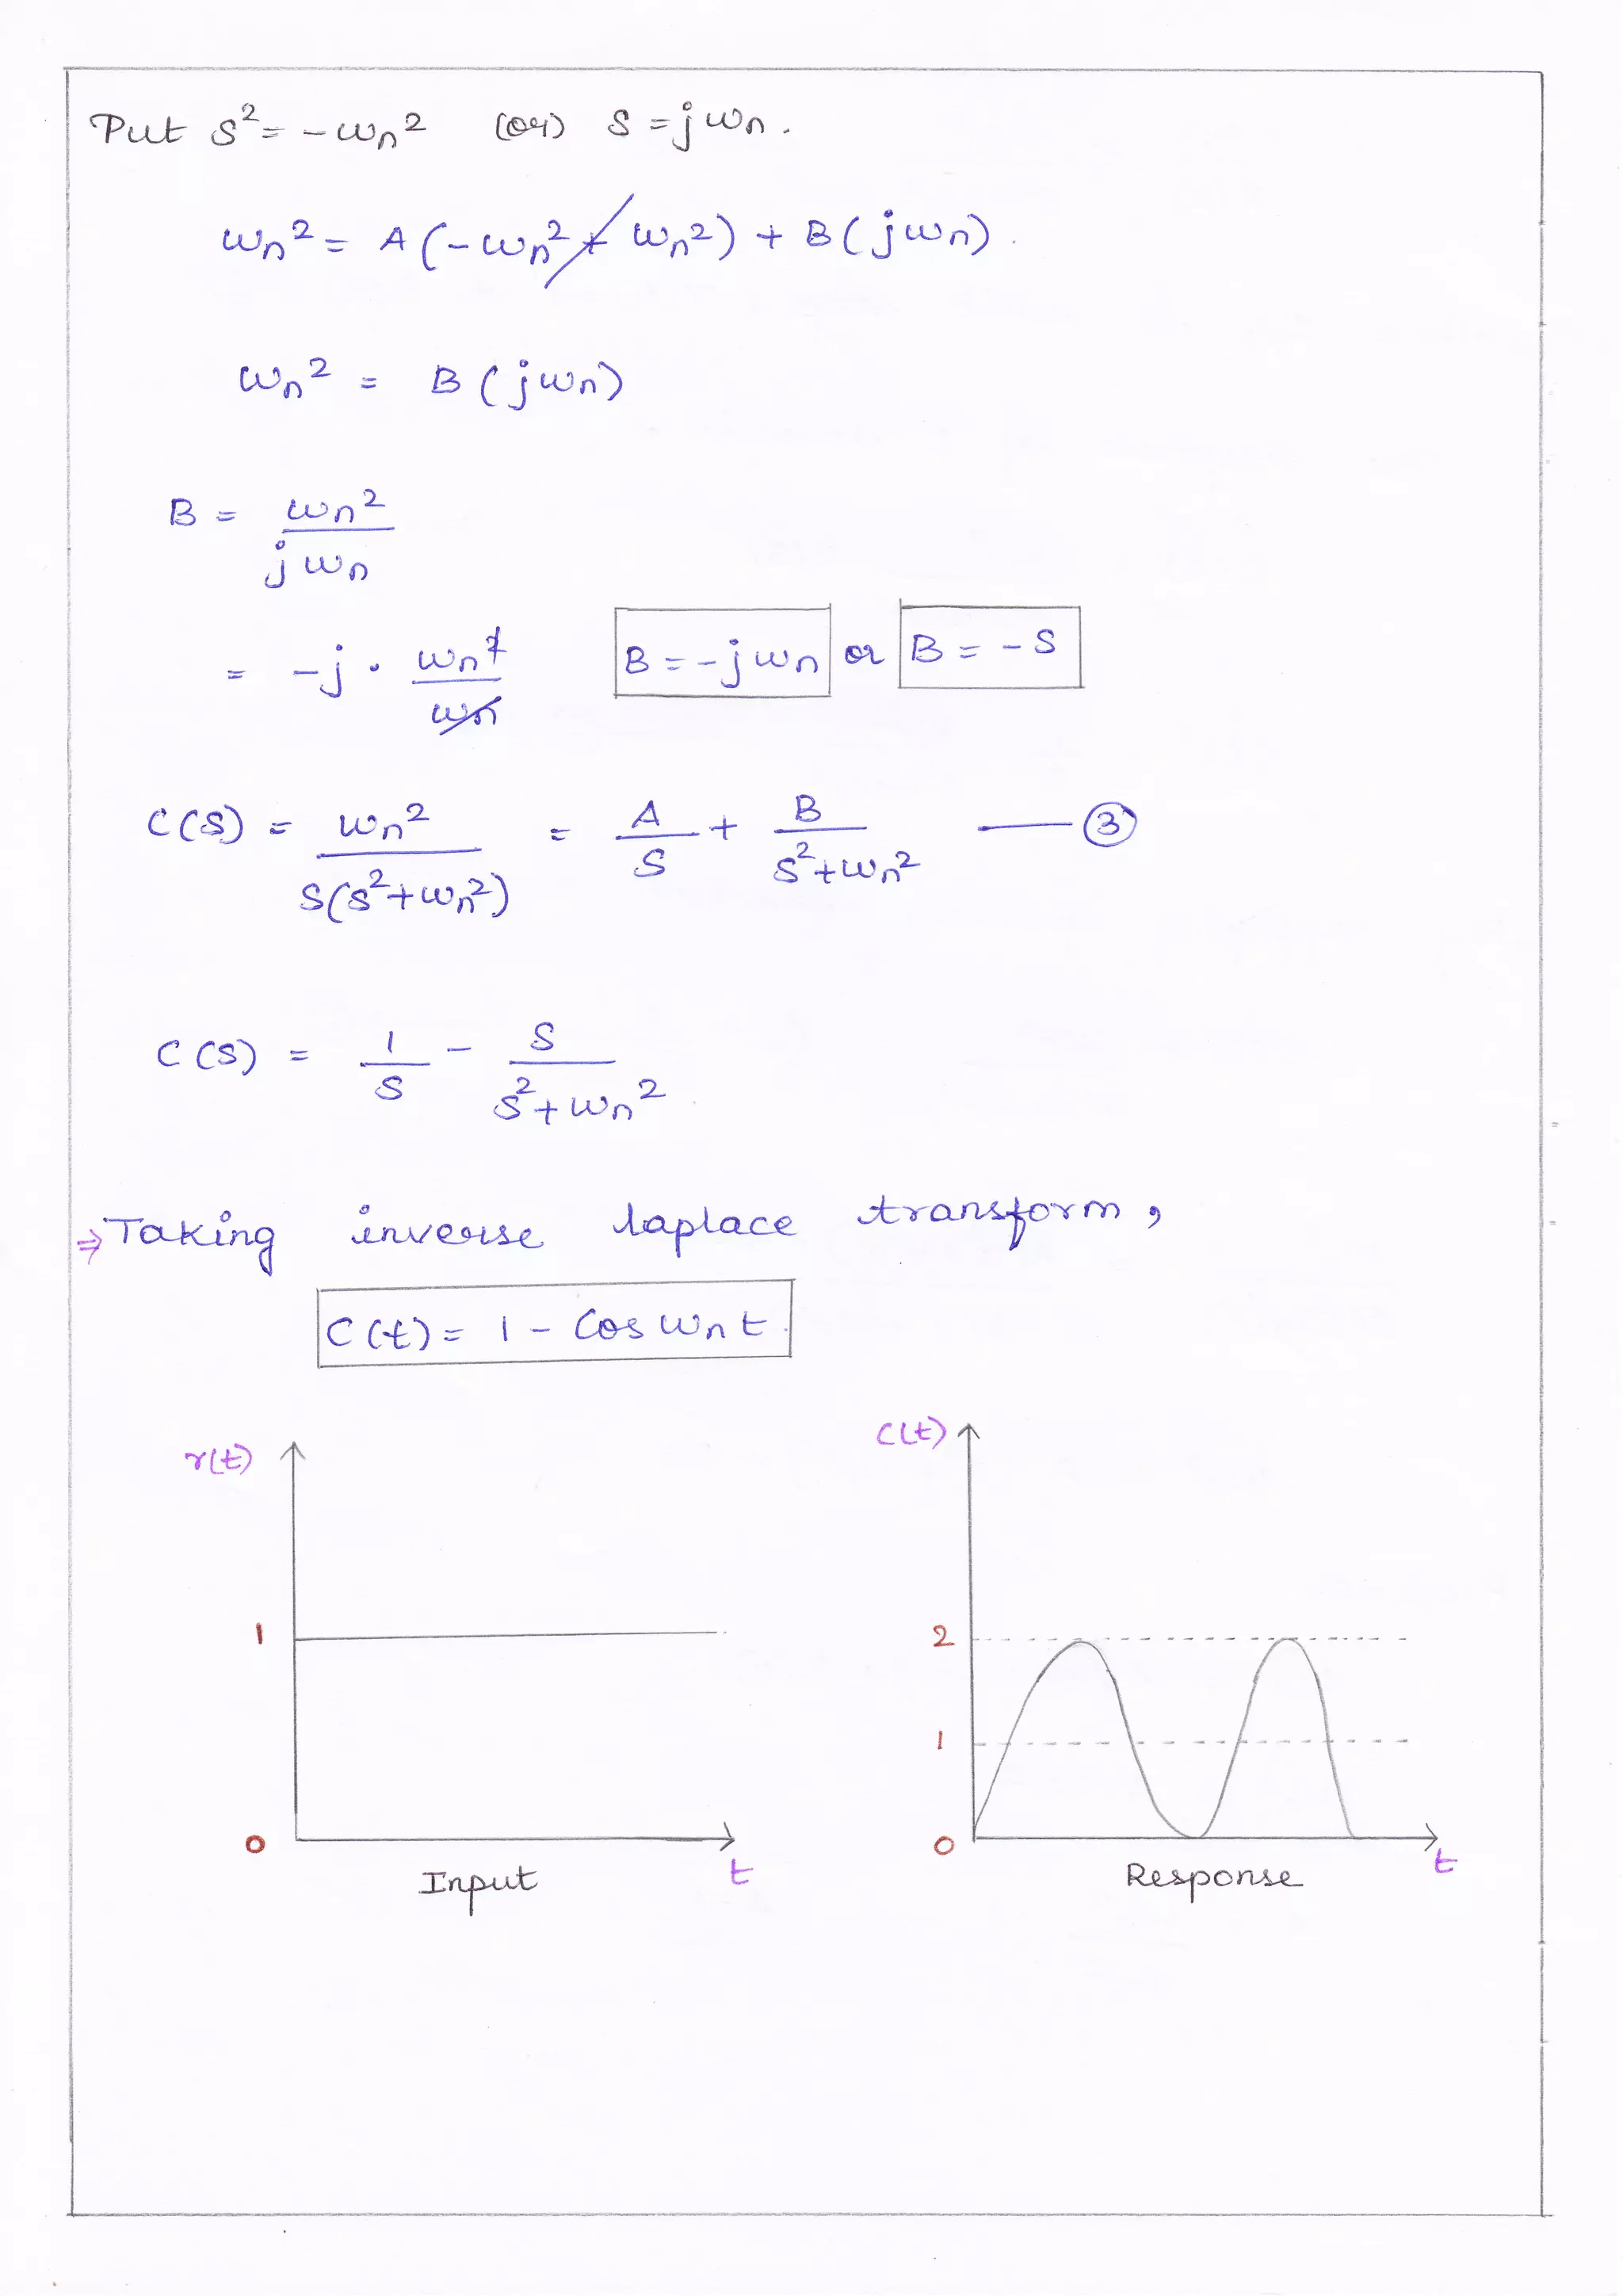 Put s² = -ωn² (or) s = jωn.
ωn² = A(-ωn² + ωn²) + B(jωn).
ωn² = B(jωn)
B = ωn² / jωn
= -j . ωn² / ωn   B = -jωn or B = -s
C(s) = ωn² / s(s²+ωn²) = A/s + B/s²+ωn² — ③
C(s) = 1/s - s/s²+ωn²
⇒ Taking inverse laplace transform,
C(t) = 1 - Cos ωn t.
r(t)
1
0
t
Input
C(t)
2
1
0
t
Response